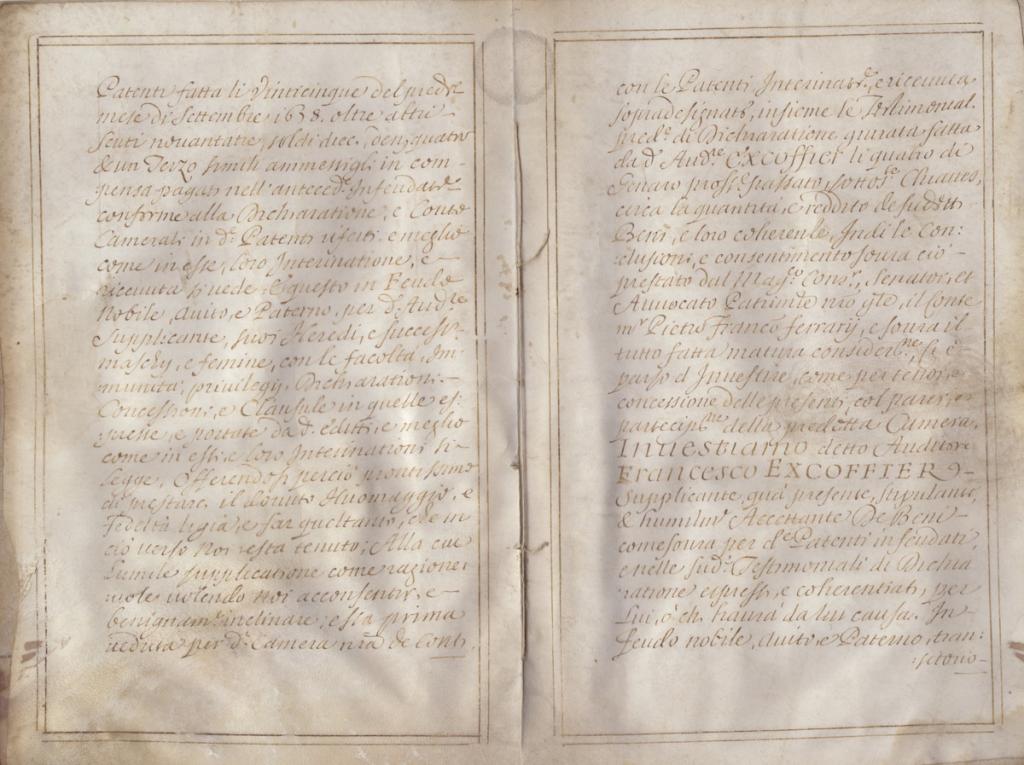 Patenti fatta li Vinticinque del pred.to
mese di Settembre 1638. oltre altri
scuti nouantatre, soldi dieci, den. quatro
& un Terzo simili ammessigli in com-
pensa pagati nell' anteced.te Infeudat.ne
conforme alla Dichiaratione, e Conto
Camerali in d.te Patenti riferti, e meglio
come in esse, loro Interinatione, e
riceuuta si uede. E questo in Feudo
Nobile, Auito, e Paterno, per d.to Aud.re
Supplicante, suoi Heredi, e success.ri
maschy, e femine, con le facoltà, Im-
munità, priuilegy, Dichiarationi,
Concessioni, e Clausule in quelle es-
presse, e portate da d.ti editti, e meglio
come in essi, e loro Interinationi si
legge, Offerendosi perciò prontissimo
di prestare il douuto Huomaggio, e
Fedeltà ligia, e far quel tanto, che in
ciò uerso Noi resta tenuto; Alla cui
humile supplicatione come ragione
uole uolendo noi acconsentir, e
benignam.te inclinare, e sia prima
ueduta per d.ta Camera n.ra de Conti
con le Patenti Interinat.e, e riceuuta
sopradesignate, insieme le Testimonial.
pred.e di Dichiaratione giurata fatta
da d.to Aud.re EXCOFFIER li quatro di
Genaro pross.o passato, sottos.
circa la quantità, e reddito de sudetti
Beni, e loro coherenze, Indi le Con-
clusioni, e consentimento soura ciò
prestato dal Mag.co Cons.re, Senator, et
Auuocato Patrim.le n.ro gñle, il Conte
m.r Pietro Franc.o Ferrary, e soura il
tutto fatta matura consider.ne, si è
parso d'Inuestire, come per tenor, e
concessione delle presenti, col parer, e
particip.ne della predetta Camera,
Inuestiamo detto Auditore
Francesco EXCOFFIER
Supplicante, quà presente, stipulante,
& humilm.te Accettante De Beni
come soura per d.te Patenti infeudati,
e nelle sud.te Testimoniali di Dichia
ratione espressi, e coherentiati, per
Lui, ò chi haurà da lui causa. In
Feudo nobile, Auito, e Paterno, tran:
sitorio